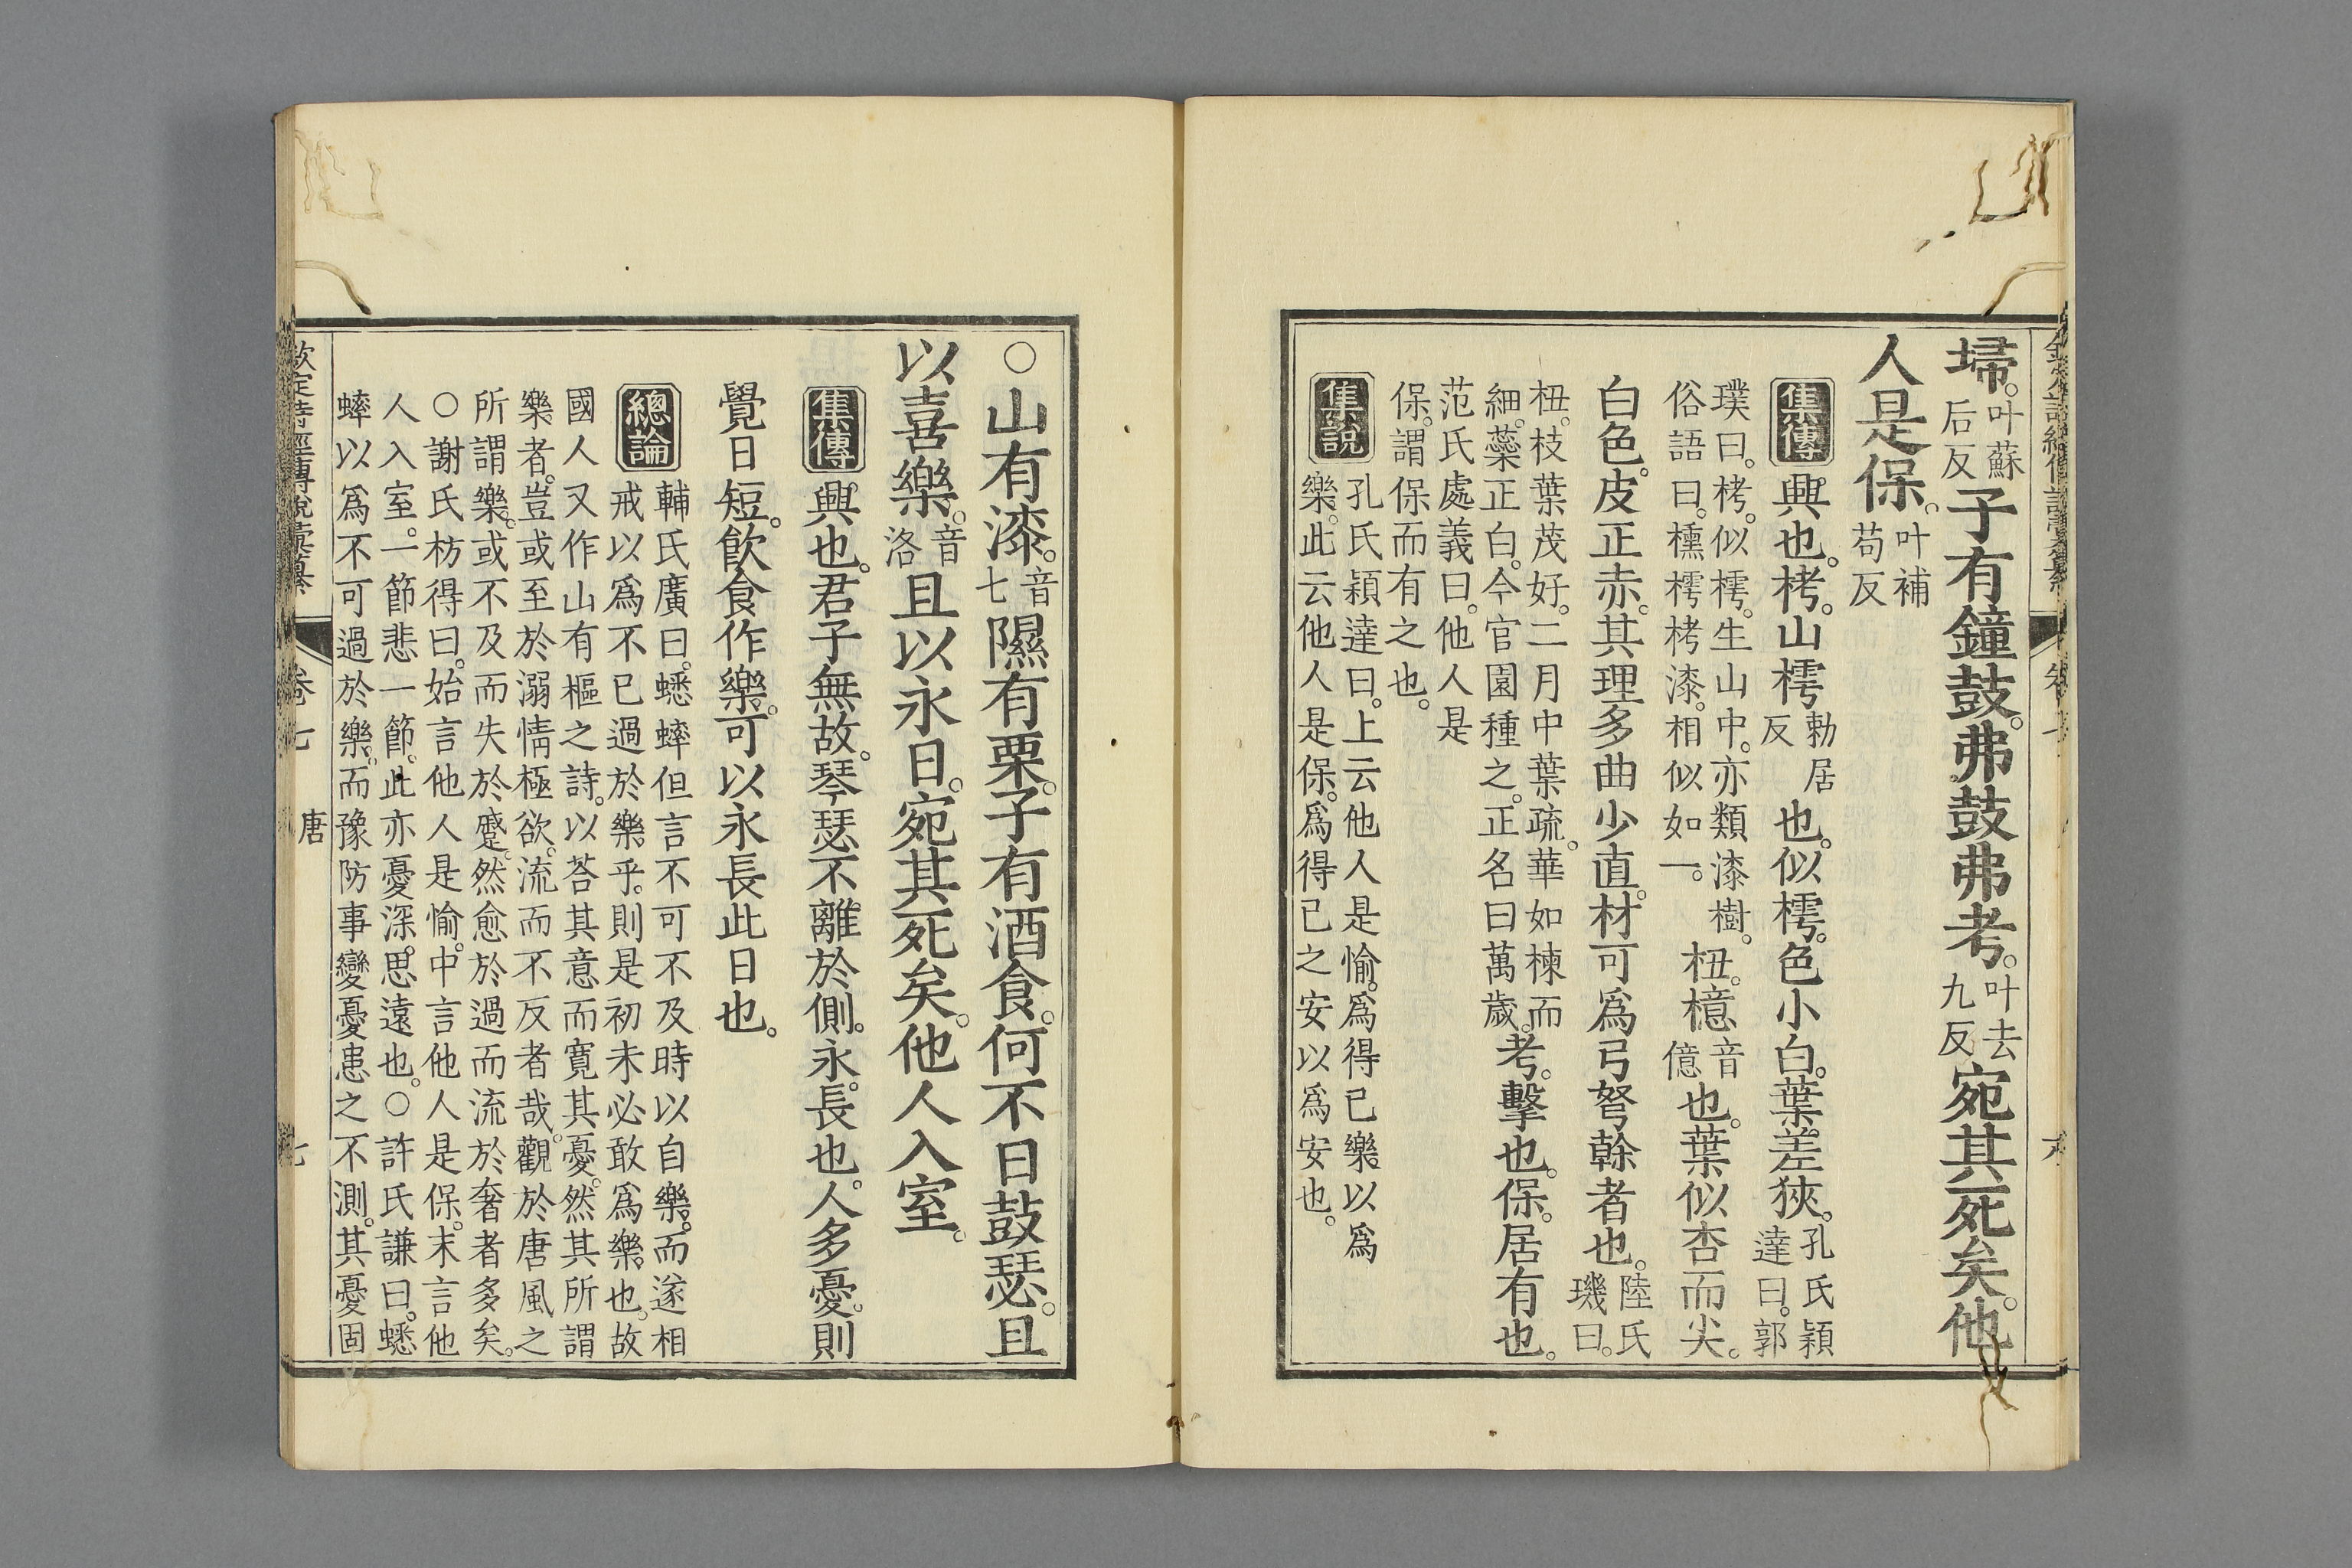 埽。叶蘇后反子有鐘鼓。弗鼓弗考。叶去九反宛其死矣。他
人是保。叶補苟反
集傳 興也。栲。山樗勅居反也。似樗。色小白。葉差狹。孔氏穎達曰。郭
璞曰。栲。似樗。生山中。亦類漆樹。俗語曰。櫄樗栲漆。相似如一。杻。檍音億也。葉似杏而尖。
白色。皮正赤。其理多曲少直。材可爲弓弩榦者也。陸氏璣曰。
杻。枝葉茂好。二月中葉疏。華如楝而細。蘂正白。今官園種之。正名曰萬歲。考。擊也。保。居有也。
范氏處義曰。他人是保。謂保而有之也。
集說 孔氏穎達曰。上云他人是愉。爲得已樂以爲樂。此云他人是保。爲得已之安以爲安也。
○山有漆。音七隰有栗。子有酒食。何不日鼓瑟。且
以喜樂。音洛且以永日。宛其死矣。他人入室。
集傳 興也。君子無故。琴瑟不離於側。永。長也。人多憂。則
覺日短。飲食作樂。可以永長此日也。
總論 輔氏廣曰。蟋蟀但言不可不及時以自樂。而遂相
戒以爲不已過於樂乎。則是初未必敢爲樂也。故
國人又作山有樞之詩。以答其意而寬其憂。然其所謂
樂者。豈或至於溺情極欲。流而不反者哉。觀於唐風之
所謂樂。或不及而失於蹙。然愈於過而流於奢者多矣。
○謝氏枋得曰。始言他人是愉。中言他人是保。末言他
人入室。一節悲一節。此亦憂深。思遠也。○許氏謙曰。蟋
蟀以爲不可過於樂。而豫防事變憂患之不測。其憂固
欽定詩經傳說彙纂 卷七 唐 七